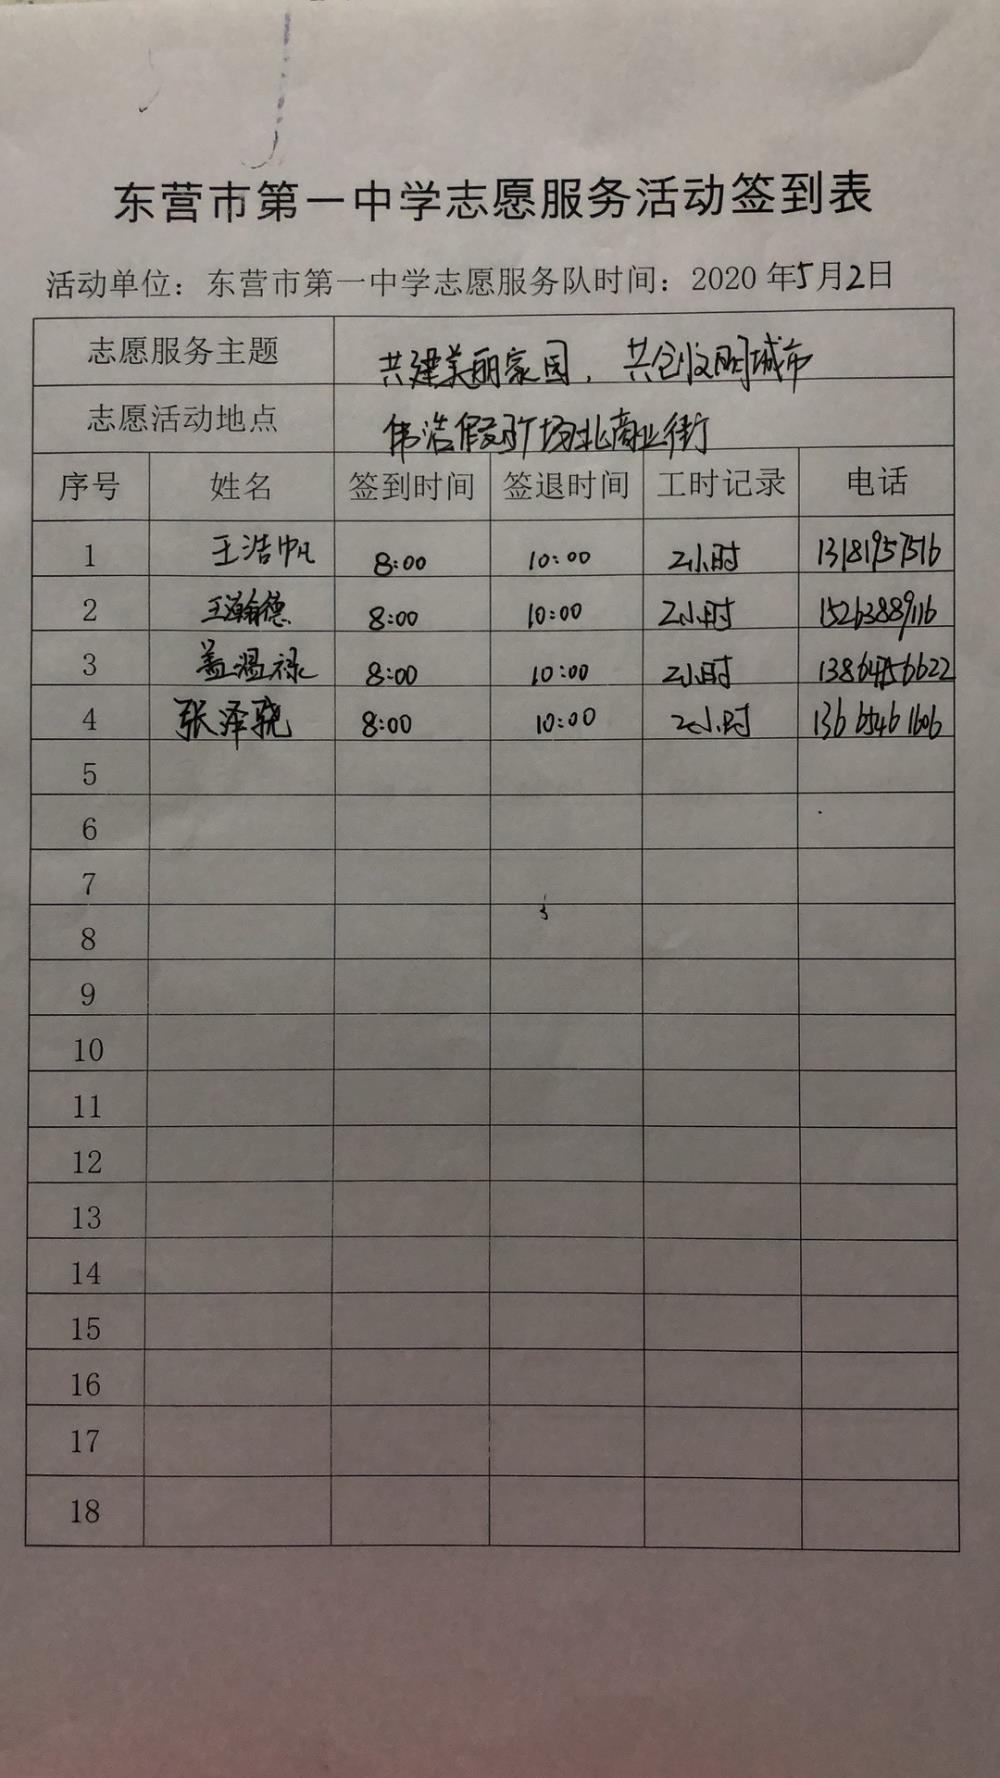 东营市第一中学志愿服务活动签到表
活动单位：东营市第一中学志愿服务队时间：2020年5月2日
志愿服务主题 共建美丽家园，共创文明城市
志愿活动地点 伟浩广场北商业街
序号 姓名 签到时间 签退时间 工时记录 电话
1 王浩帆 8:00 10:00 2小时 13181957516
2 王瀚德 8:00 10:00 2小时 15263889116
3 盖温禄 8:00 10:00 2小时
4 张泽骁 8:00 10:00 2小时 13665461606
5
6
7
8
9
10
11
12
13
14
15
16
17
18